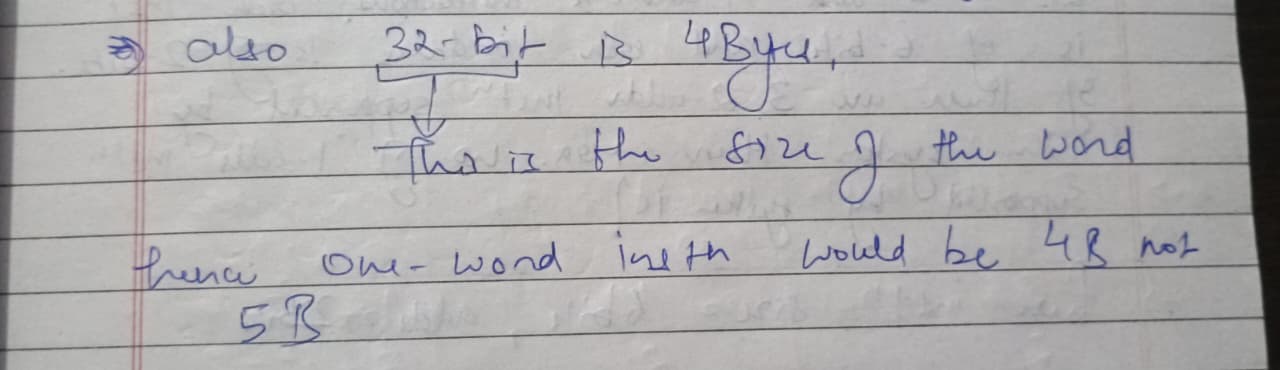 ⇒ also 32-bit is 4Byte,
This is the size of the word
hence one-word instn would be 4B not
5B